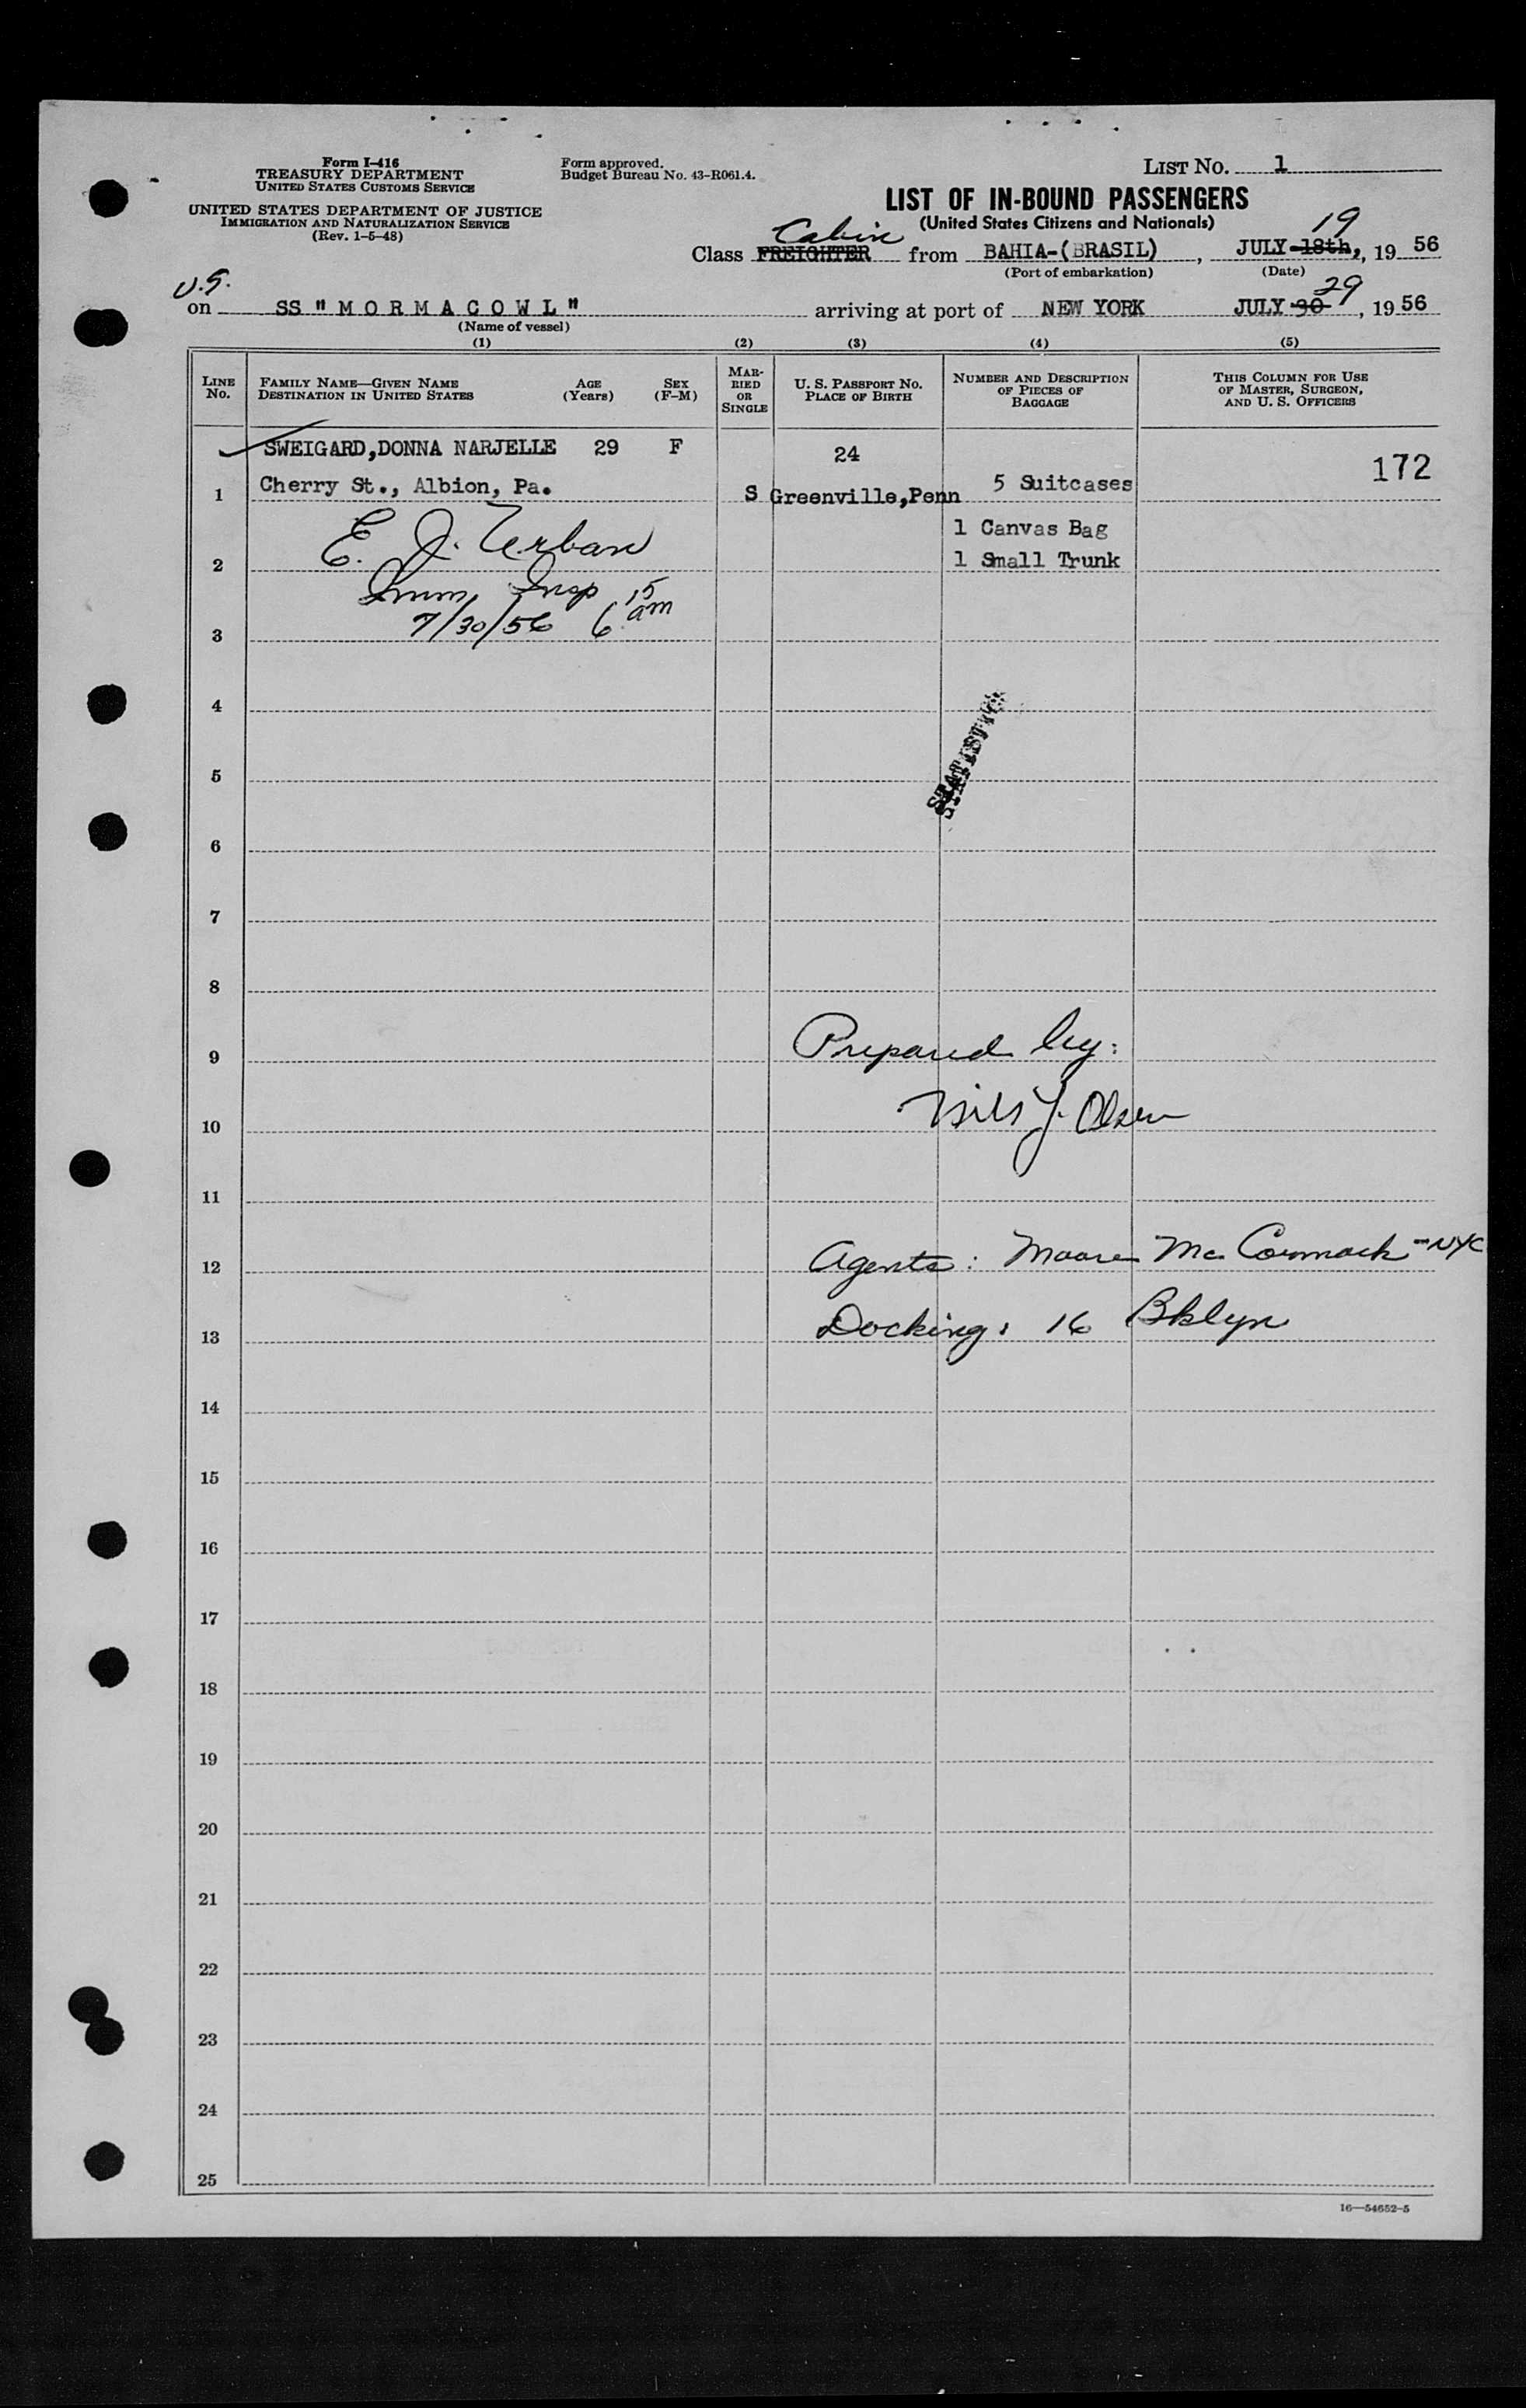 Form I-416
TREASURY DEPARTMENT
UNITED STATES CUSTOMS SERVICE
UNITED STATES DEPARTMENT OF JUSTICE
IMMIGRATION AND NATURALIZATION SERVICE
(Rev. 1-5-48)
Form approved.
Budget Bureau No. 43-R061.4.
LIST NO. 1
LIST OF IN-BOUND PASSENGERS
(United States Citizens and Nationals)
Cabin 19
Class FREIGHTER from BAHIA-(BRASIL), JULY 18th, 1956
(Port of embarkation) (Date)
U.S. 29
on SS "MORMACOWL" arriving at port of NEW YORK JULY 30, 1956
(Name of vessel)
(1) (2) (3) (4) (5)
LINE No. FAMILY NAME—GIVEN NAME DESTINATION IN UNITED STATES AGE (Years) SEX (F-M) MARRIED OR SINGLE U. S. PASSPORT NO. PLACE OF BIRTH NUMBER AND DESCRIPTION OF PIECES OF BAGGAGE THIS COLUMN FOR USE OF MASTER, SURGEON, AND U. S. OFFICERS
SWEIGARD,DONNA NARJELLE 29 F 24 172
1 Cherry St., Albion, Pa. S Greenville,Penn 5 Suitcases
1 Canvas Bag
2 E. J. Urban 1 Small Trunk
Imm. Insp
3 7/30/56 6 15 am
4
STATISTICS
5
6
7
8
9 Prepared by:
10 Nils J. Olsen
11
12 Agents: Moore McCormack - NYC
13 Docking: 16 Bklyn
14
15
16
17
18
19
20
21
22
23
24
25
16—54652-5